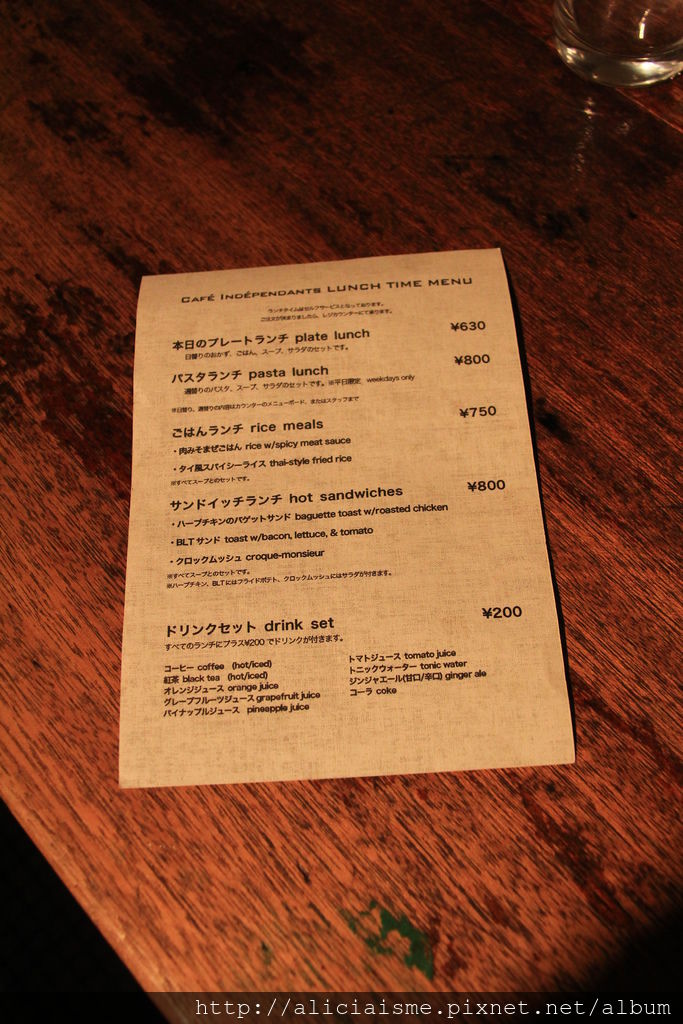 CAFÉ INDÉPENDANTS LUNCH TIME MENU
ランチタイムはセルフサービスとなっております。
ご注文が決まりましたら、レジカウンターにて承ります。
本日のプレートランチ plate lunch ¥630
日替りのおかず、ごはん、スープ、サラダのセットです。
パスタランチ pasta lunch ¥800
週替りのパスタ、スープ、サラダのセットです。※平日限定 weekdays only
※日替り、週替りの内容はカウンターのメニューボード、またはスタッフまで
ごはんランチ rice meals ¥750
・肉みそまぜごはん rice w/spicy meat sauce
・タイ風スパイシーライス thai-style fried rice
※すべてスープとのセットです。
サンドイッチランチ hot sandwiches ¥800
・ハーブチキンのバゲットサンド baguette toast w/roasted chicken
・BLTサンド toast w/bacon, lettuce, & tomato
・クロックムッシュ croque-monsieur
※すべてスープとのセットです。
※ハーブチキン、BLTにはフライドポテト、クロックムッシュにはサラダが付きます。
ドリンクセット drink set ¥200
すべてのランチにプラス¥200でドリンクが付きます。
コーヒー coffee (hot/iced)
紅茶 black tea (hot/iced)
オレンジジュース orange juice
グレープフルーツジュース grapefruit juice
パイナップルジュース pineapple juice
トマトジュース tomato juice
トニックウォーター tonic water
ジンジャエール(甘口/辛口) ginger ale
コーラ coke
http://aliciaisme.pixnet.net/album